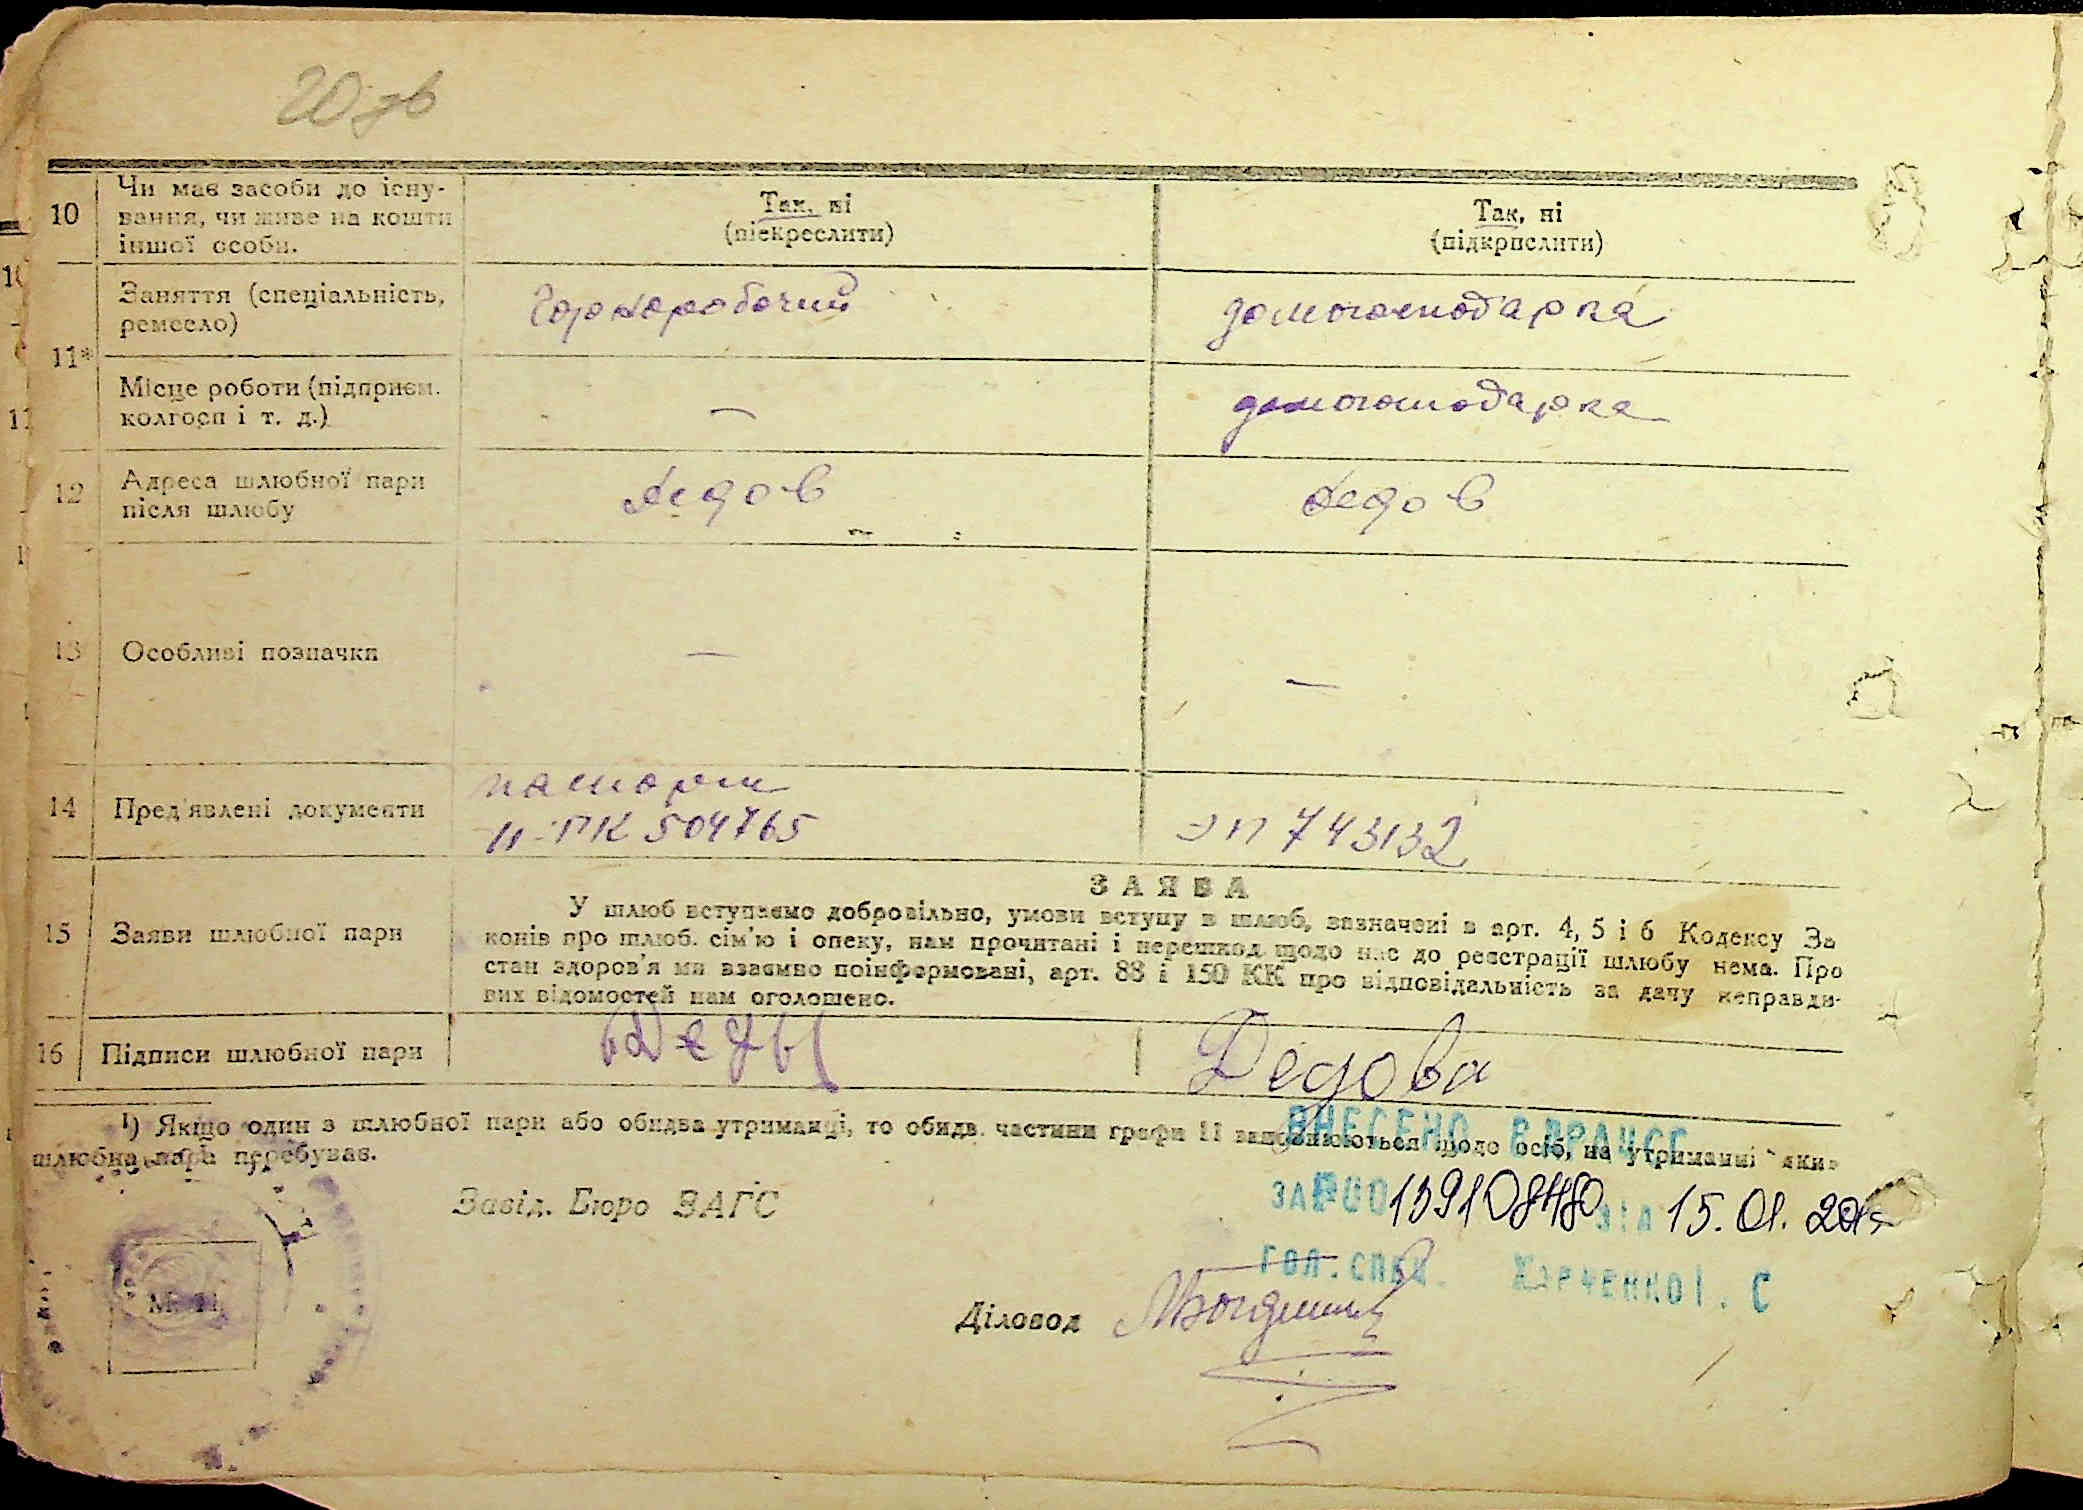 20 дв
10 Чи має засоби до існу-
вання, чи живе на кошти
іншої особи.
Так, ні
(піекреслити)
Так, ні
(підкрпслити)
11* Заняття (спеціальність,
ремесло)
Чорноробочий
домогосподарка
Місце роботи (підприєм.
колгосп і т. д.)
—
домогосподарка
12 Адреса шлюбної пари
після шлюбу
Дедов
Дедов
13 Особливі позначки
—
—
14 Пред'явлені документи
паспорт
ІІ-ПК 504765
ЭП 743132
15 Заяви шлюбної пари
ЗАЯВА
У шлюб вступаємо добровільно, умови вступу в шлюб, зазначені в арт. 4, 5 і 6 Кодексу За
конів про шлюб. сім'ю і опеку, нам прочитані і перешкод щодо нас до реєстрації шлюбу нема. Про
стан здоров'я ми взаємно поінформовані, арт. 88 і 150 КК про відповідальність за дачу неправди-
вих відомостей нам оголошено.
16 Підписи шлюбної пари
Дедова
¹) Якщо один з шлюбної пари або обидва утриманці, то обидв. частини графи 11 заповнюються щодо осіб, на утриманні яки
шлюбна пара перебуває.
ВНЕСЕНО В ДРАЦСГ
Завід. Бюро ЗАГС
15.01.
ГОЛ. СПЕЦ. ХАРЧЕНКО І. С
Діловод
М. П.